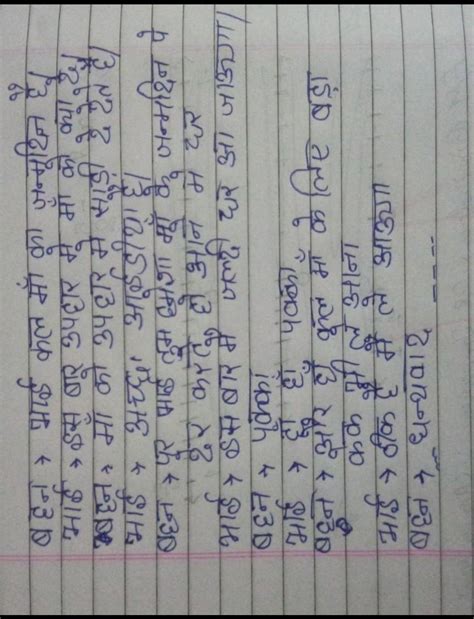 बहन → भाई कल माँ का जन्मदिन है।
भाई → इस बार उपहार मे माँ को क्या दे।
बहन → माँ को उपहार मे साड़ी दे देते है।
भाई → अच्छा आईडीया है।
बहन → पर भाई तुम हमेशा माँ के जन्मदिन पे
देर करते हो आने मे घर
भाई → इस बार मै जल्दी घर आ जाऊगा।
बहन → पक्का
भाई → हाँ हाँ पक्का
बहन → और हाँ माँ के लिए बड़ा
केक भी ले आना
भाई → ठीक है मै ले आऊगा
बहन → धन्यवाद ----